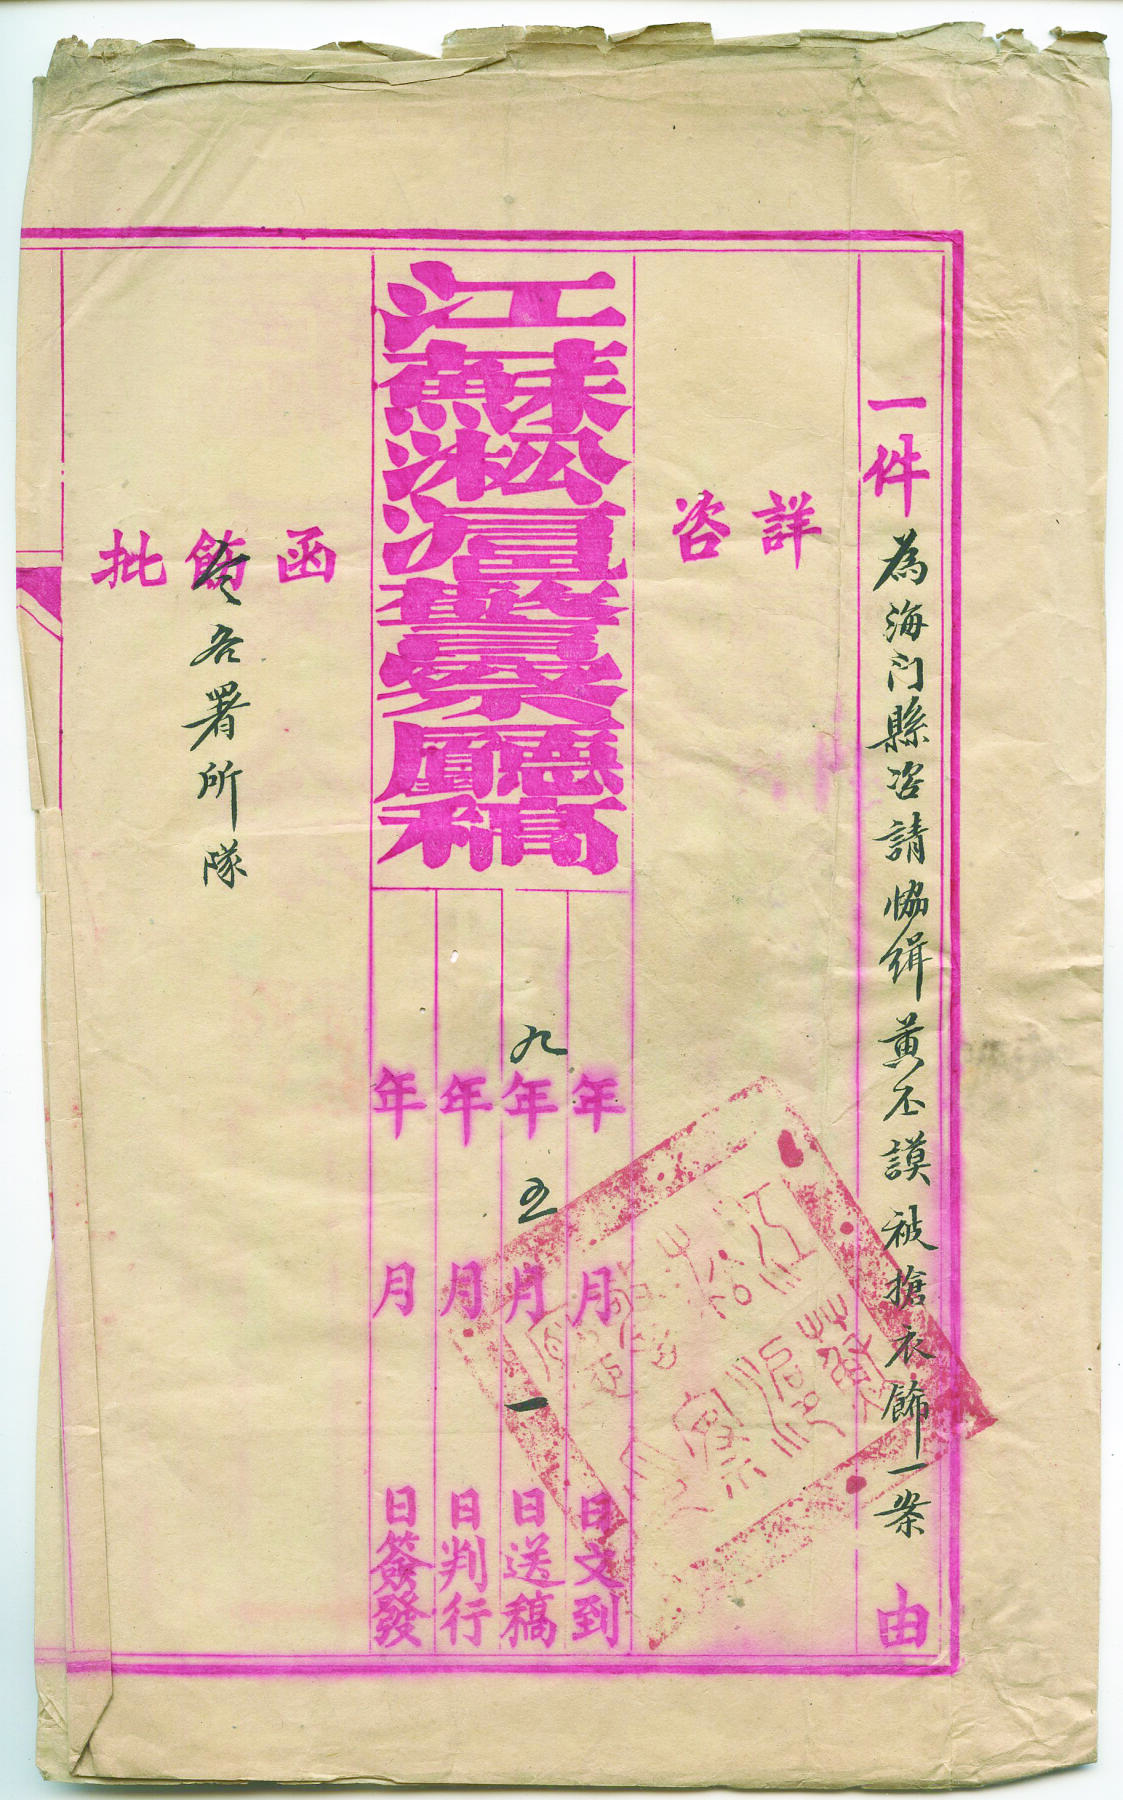 一件為海门縣咨請協緝黃丕謨被搶衣飾一案由
詳
咨
年月日文到
九年五月一日送稿
年月日判行
年月日簽發
江蘇淞滬警察廳稿
函
飭
令各署所隊
批